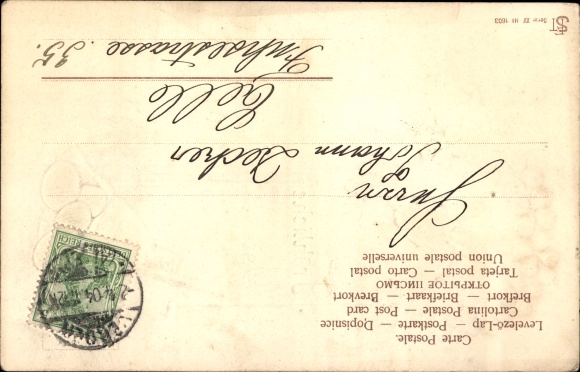 Carte Postale.
Levelező-Lap — Postkarte — Dopisnice
Cartolina Postale — Post card
Brefkort — Briefkaart — Brevkort
ОТКРЫТОЕ ПИСЬМО
Tarjeta postal — Carto postal
Union postale universelle
Herrn
Johann Decker
Celle
35.
Serie XV III 1603